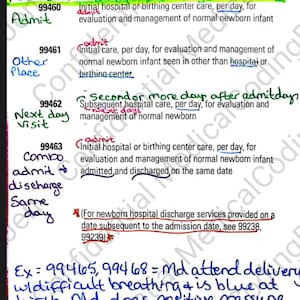 99460 Initial hospital or birthing center care, per day, for
Admit admit
evaluation and management of normal newborn infant
admit
99461 Initial care, per day, for evaluation and management of
Other normal newborn infant seen in other than hospital or
Place birthing center
Second or more days after admit days
99462 Subsequent hospital care, per day, for evaluation and
Next day Next days
Visit management of normal newborn
admit
99463 Initial hospital or birthing center care, per day, for
Combo evaluation and management of normal newborn infant
admit & admitted and discharged on the same date
discharge
Same
day
(For newborn hospital discharge services provided on a
date subsequent to the admission date, see 99238,
99239)
Ex: = 99465, 99468 = Md attend delivery
w/ difficult breathing & is blue at